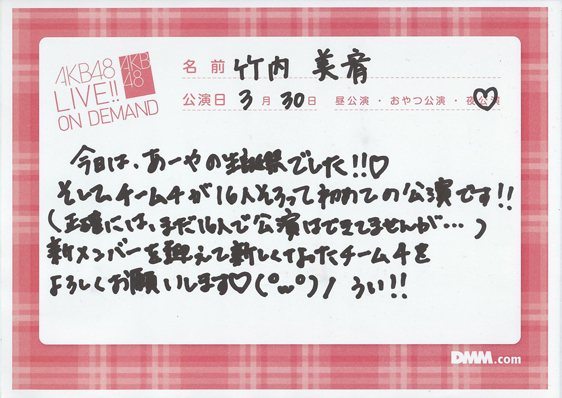 AKB48
LIVE!!
ON DEMAND
AKB
48
名前 竹内 美宥
公演日 3月30日 昼公演・おやつ公演・夜公演
今日は、あーやの生誕祭でした!!♡
そしてチーム4が16人そろって初めての公演です!!
(正確には、まだ16人で公演はできてませんが… )
新メンバーを迎えて新しくなったチーム4を
よろしくお願いします♡(°ω°)/ うぃ!!
DMM.com